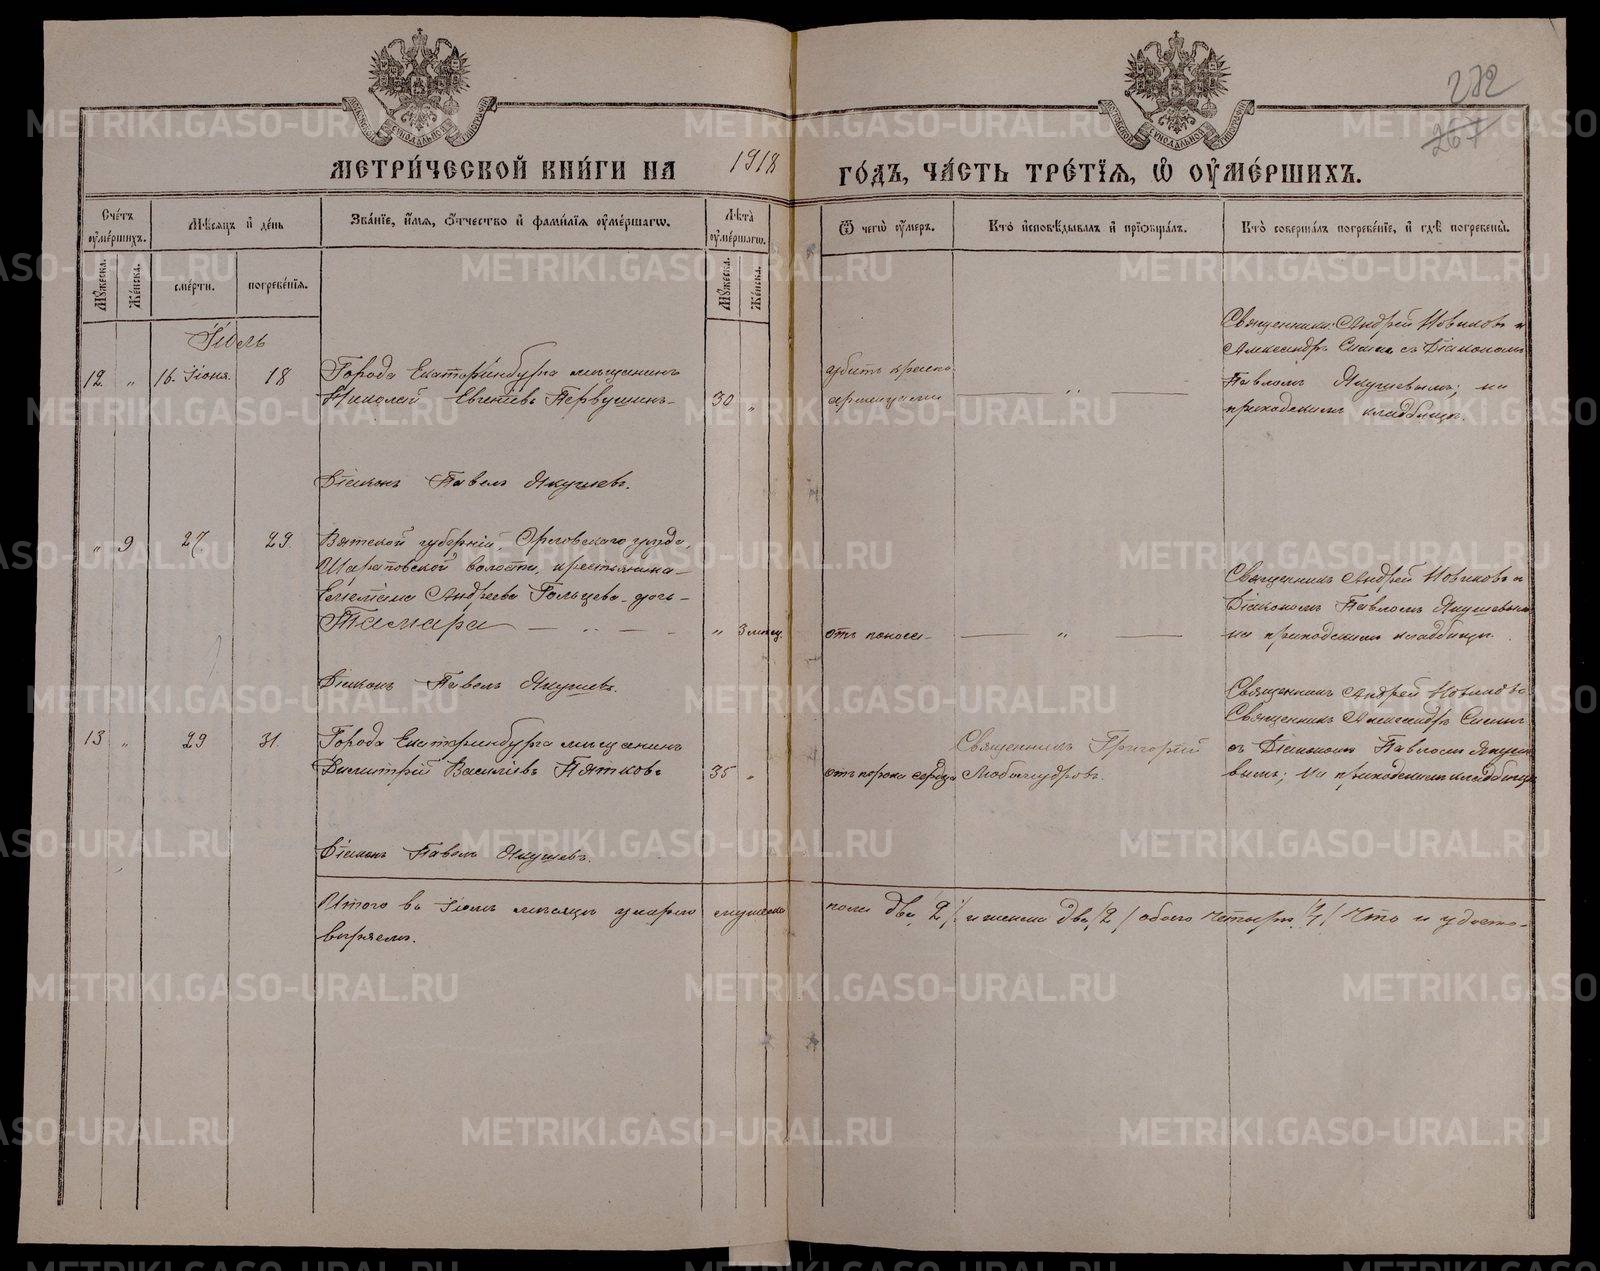 272
267
МЕТРИ́ЧЕСКОЙ КНИ́ГИ НА 1918 ГО́ДЪ, ЧА́СТЬ ТРЕ́ТЇѦ, Ѡ҆ ОУ҆МЕ́РШИХЪ.
Сче́тъ оу҆ме́ршихъ.
Мѣ́сяцъ и҆ де́нь
Зва́нїе, и҆́мѧ, ѻ҆́тчество и҆ фами́лїѧ оу҆ме́ршагѡ.
Лѣ́та оу҆ме́ршагѡ.
Ѿ чегѡ̀ оу҆́меръ.
Кто̀ и҆сповѣ́дывалъ и҆ прїѡбща́лъ.
Кто̀ соверша́лъ погребе́нїе, и҆ гдѣ̀ погребены̀.
Мꙋ́жеска.
Же́нска.
сме́рти.
погребе́нїѧ.
Мꙋ́жеска.
Же́нска.
Іюль
12. " 16. Іюня. 18
Города Екатеринбурга мѣщанинъ
Николай Евгеніевъ Первушинъ 30 "
убитъ красно-
армейцами
"
Священники: Андрей Новиковъ и
Александръ с Діакономъ
Павломъ Якушевымъ; на
приходскомъ кладбищѣ.
Діаконъ Павелъ Якушевъ.
" 9 27. 29
Вятской губерніи, Орловскаго уѣзда,
Шараповской волости, крестьянина
Андреева Гольцева дочь
Тамара " 3 мѣсяц.
отъ поноса
"
Священникъ Андрей Новиковъ и
Діакономъ Павломъ Якушевымъ
на приходскомъ кладбищѣ.
Діаконъ Павелъ Якушевъ.
13 " 29 31.
Города Екатеринбурга мѣщанинъ
Димитрій Василіевъ Пятковъ 35 "
отъ порока сердца
Священникъ Григорій
Любомудровъ.
Священникъ Андрей Новиковъ
Священникъ Александръ
съ Діакономъ Павломъ Якуше-
вымъ; на приходскомъ кладбищѣ
Діаконъ Павелъ Якушевъ.
Итого въ Іюлѣ мѣсяцѣ умерло мужеска пола два /2/ и женска два /2/ обоего четыре /4/ Что и удосто-
вѣряемъ.
METRIKI.GASO-URAL.RU